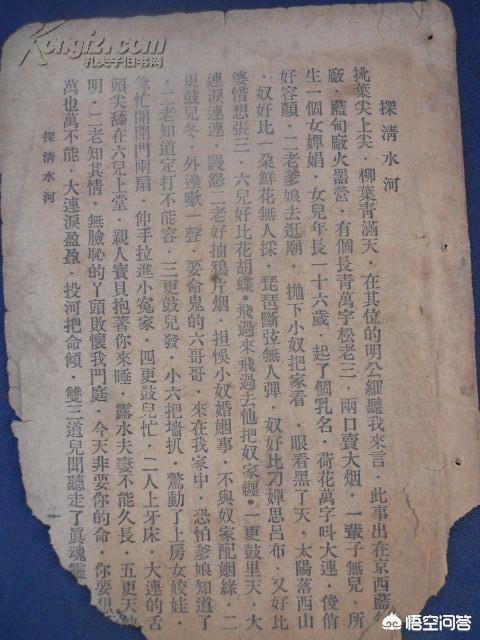 Kongfz.com
孔夫子旧书网
探清水河
挑葉尖上尖．柳葉青滿天．在其位的明公細聽我來言．此事出在京西藍
廠．藍甸廠火器營．有個長青萬字松老三．兩口賣大烟．一輩子無兒．所
生一個女嬋娟．女兒年長一十六歲．起了個乳名．荷花萬字呌大連．俊俏
好容顏．二老爹娘去逛廟．拋下小奴把家看．眼看黑了天．太陽落西山
．奴好比一朶鮮花無人採．琵琶斷弦無人彈．奴好比刁嬋思呂布．又好比
婆惜想張三．六兒好比花胡蝶．飛過來飛過去他把奴家纏．一更鼓里天．大
連淚連連．報怨二老好抽鴉片烟．担悞小奴婚姻事．不與奴家配姻緣．二
更鼓兒冬．外邊嗽一聲．要命鬼的六哥哥．來在我家中．恐怕爹娘知道了
．二老知道定打不能容．三更鼓兒發．小六把墻扒．驚動了上房女姣娃．
急忙開開門兩扇．伸手拉進小寃家．四更鼓兒忙．二人上牙床．大連的舌
頭尖舔在六兒上堂．親人寳貝抱著你來睡．露水夫妻不能久長．五更天
明．二老知其情．無臉恥的丫頭敗懷我門庭．今天非要你的命．你要想
萬也萬不能．大連淚盈盈．投河把命傾．雙三道兒聞聽走了眞魂靈
探清水河
一
悟空问答